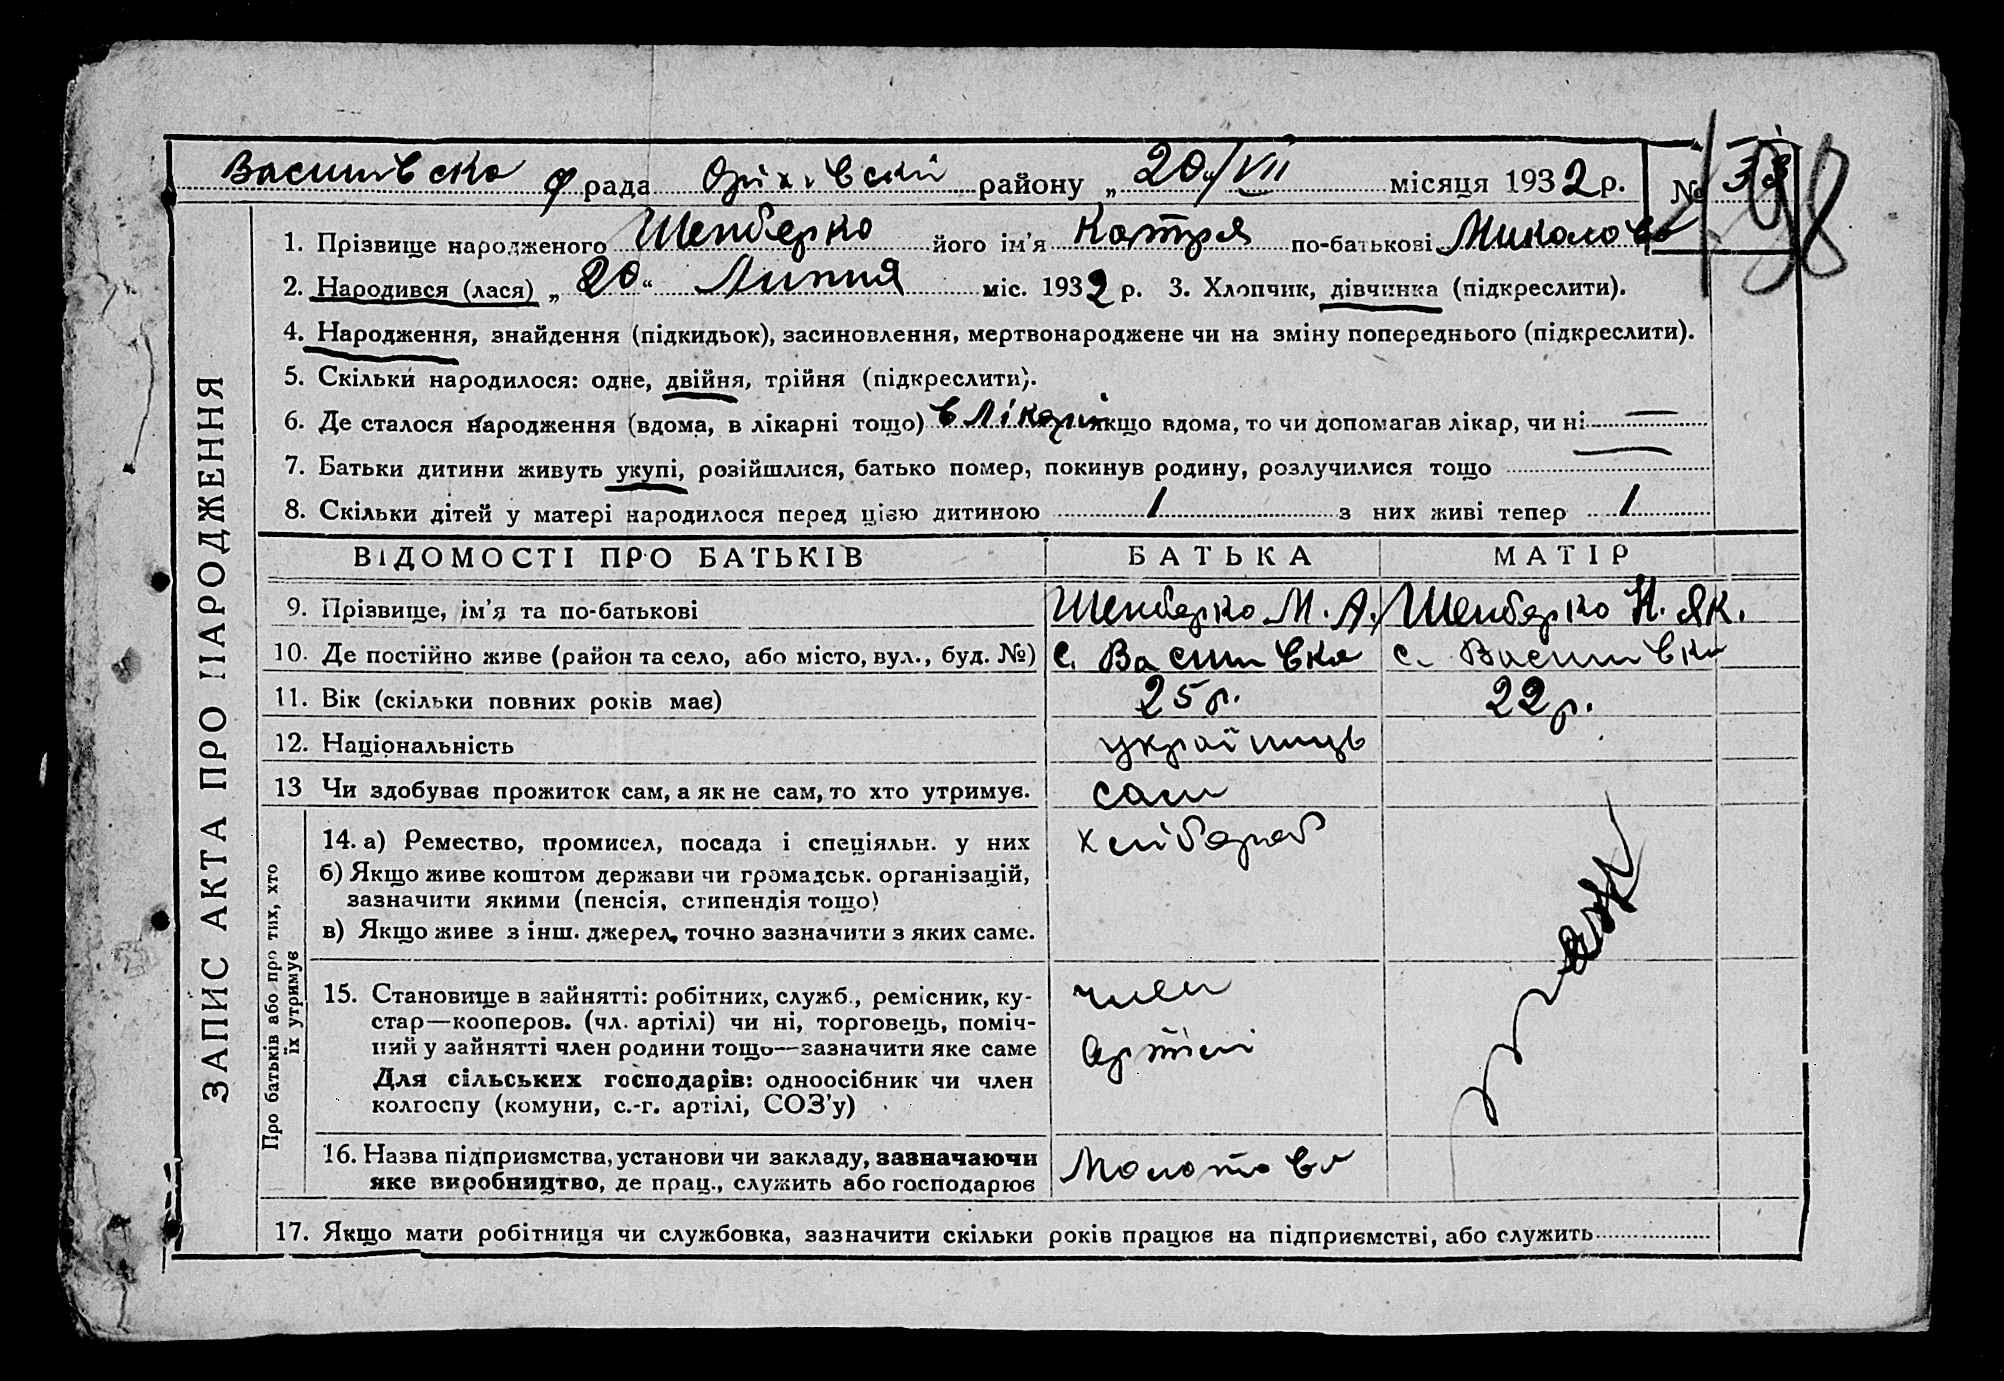 Василівська рада Оріхівский району „ 20 / VII місяця 1932 р. № 33
198
1. Прізвище народженого Шендерко його ім'я Катря по-батькові Миколаєв
2. Народився (лася) „ 20 “ Липня міс. 1932 р. 3. Хлопчик, дівчинка (підкреслити).
4. Народження, знайдення (підкидьок), засиновлення, мертвонароджене чи на зміну попереднього (підкреслити).
5. Скільки народилося: одне, двійня, трійня (підкреслити).
6. Де сталося народження (вдома, в лікарні тощо) в лікарні якщо вдома, то чи допомагав лікар, чи ні —
7. Батьки дитини живуть укупі, розійшлися, батько помер, покинув родину, розлучилися тощо
8. Скільки дітей у матері народилося перед цією дитиною 1 з них живі тепер 1
ЗАПИС АКТА ПРО НАРОДЖЕННЯ
ВІДОМОСТІ ПРО БАТЬКІВ БАТЬКА МАТІР
9. Прізвище, ім'я та по-батькові Шендерко М. А. Шендерко Н. Як.
10. Де постійно живе (район та село, або місто, вул., буд. №) с. Василівка с. Василівка
11. Вік (скільки повних років має) 25 р. 22 р.
12. Національність українць
13 Чи здобуває прожиток сам, а як не сам, то хто утримує. сам
Про батьків або про тих, хто
їх утримує
14. а) Ремество, промисел, посада і спеціяльн. у них хлібороб
б) Якщо живе коштом держави чи громадськ. організацій,
зазначити якими (пенсія, стипендія тощо)
в) Якщо живе з інш. джерел, точно зазначити з яких саме.
15. Становище в зайнятті: робітник, служб., ремісник, ку- член
стар—кооперов. (чл. артілі) чи ні, торговець, поміч-
ний у зайнятті член родини тощо—зазначити яке саме артілі
Для сільських господарів: одноосібник чи член
колгоспу (комуни, с.-г. артілі, СОЗ'у)
16. Назва підприємства, установи чи закладу, зазначаючи Молотова
яке виробництво, де прац., служить або господарює
17. Якщо мати робітниця чи службовка, зазначити скільки років працює на підприємстві, або служить